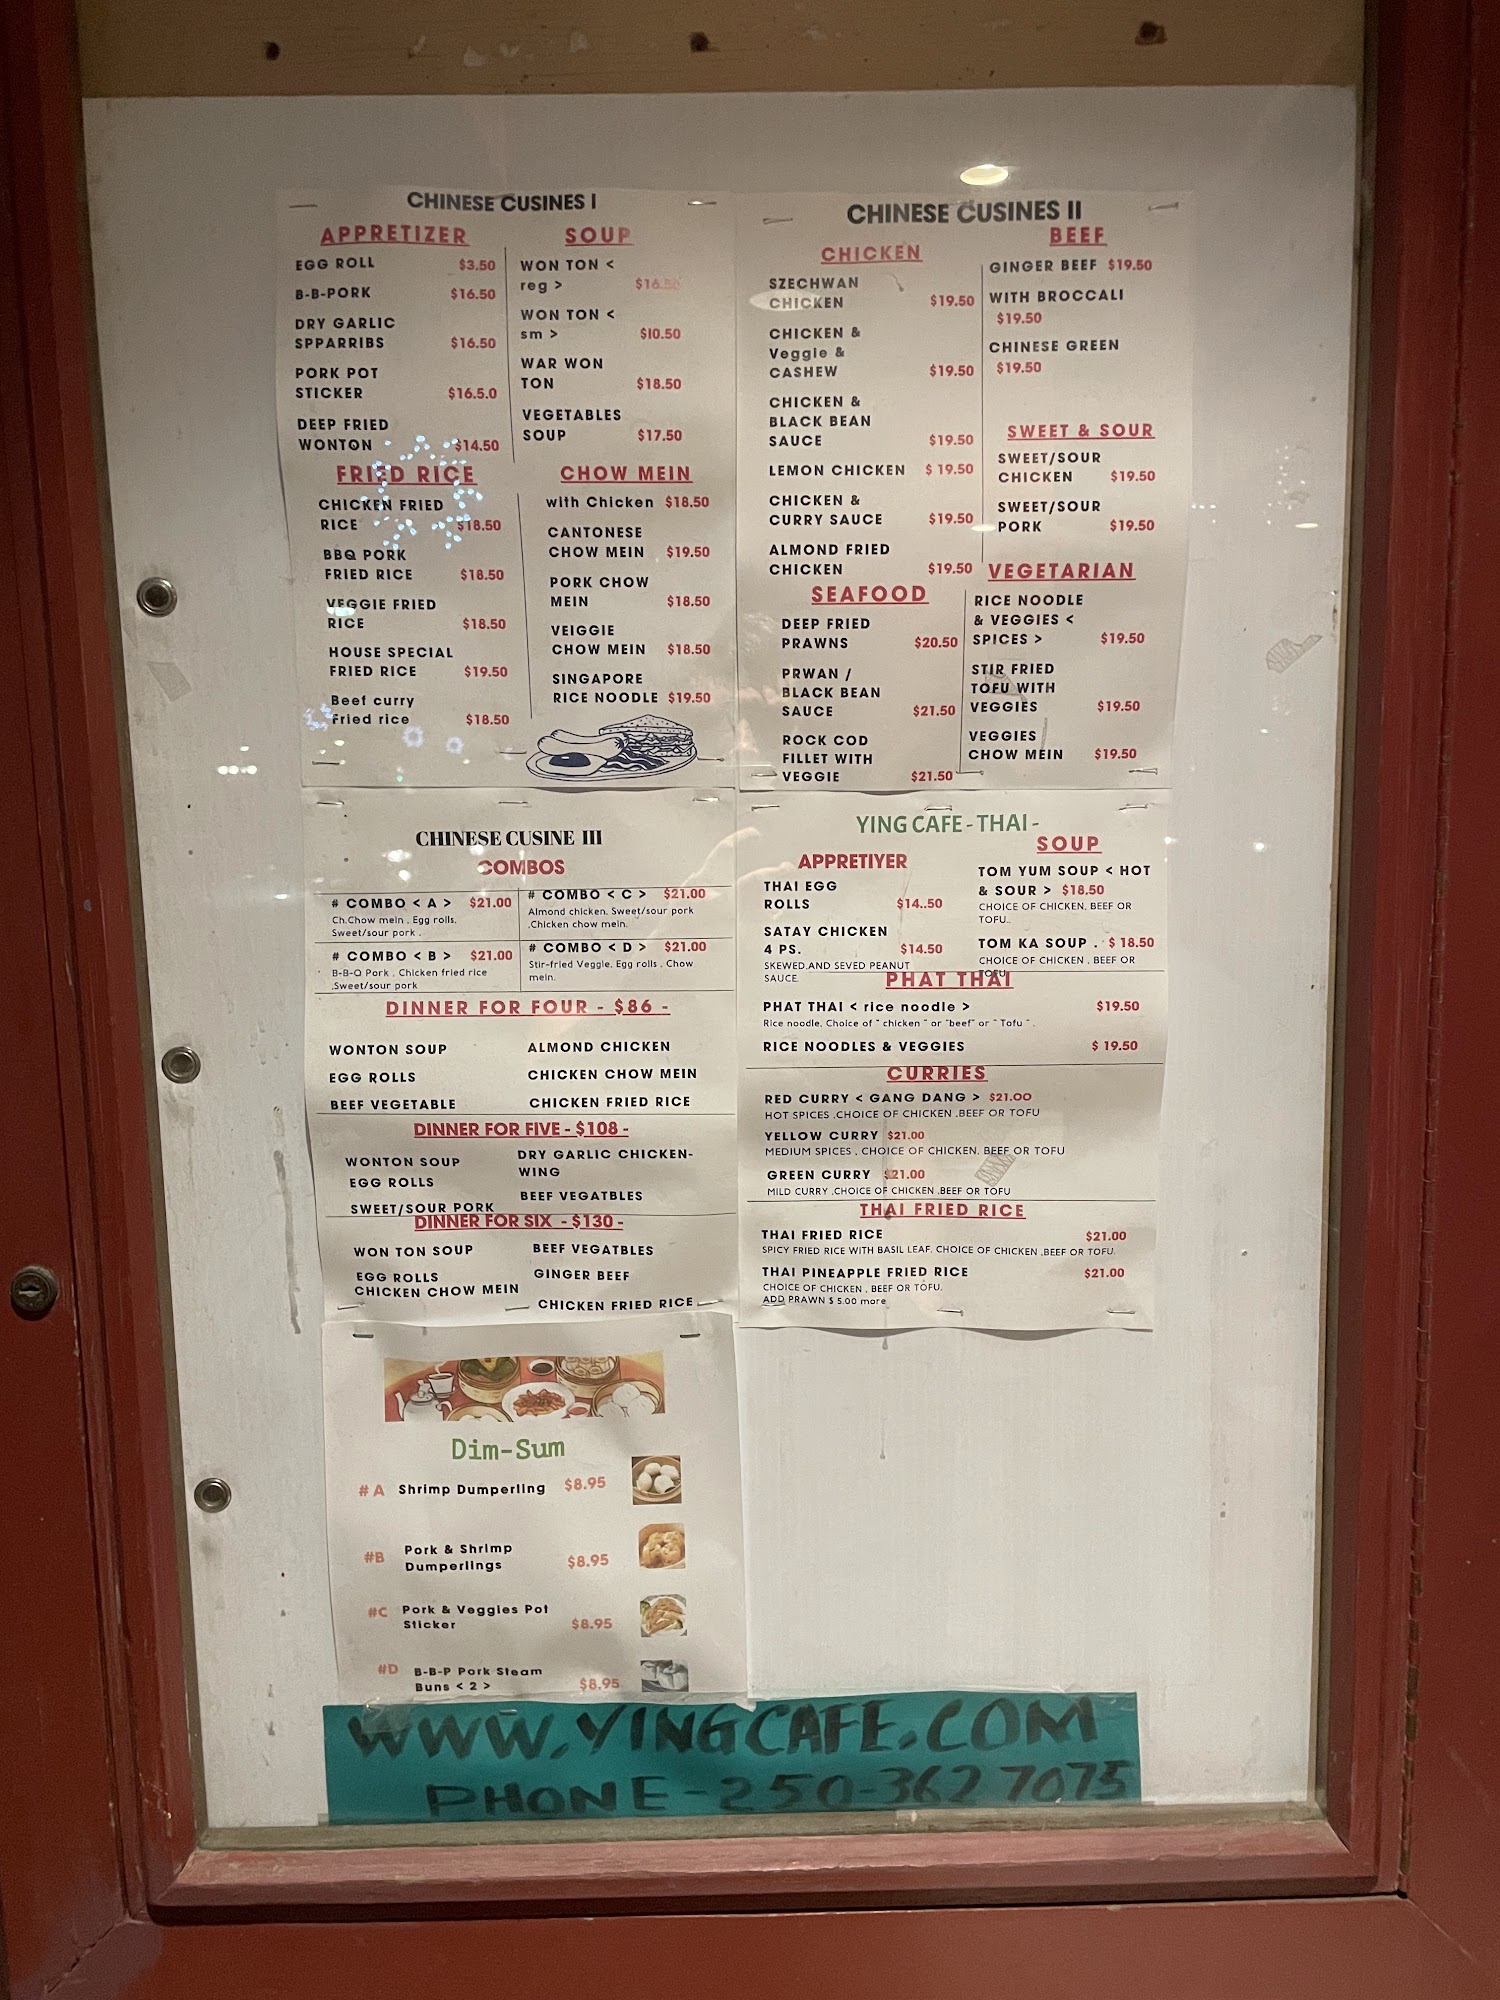 CHINESE CUSINES I
APPRETIZER
EGG ROLL $3.50
B-B-PORK $16.50
DRY GARLIC
SPPARRIBS $16.50
PORK POT
STICKER $16.5.0
DEEP FRIED
WONTON $14.50
SOUP
WON TON <
reg > $16.50
WON TON <
sm > $10.50
WAR WON
TON $18.50
VEGETABLES
SOUP $17.50
FRIED RICE
CHICKEN FRIED
RICE $18.50
BBQ PORK
FRIED RICE $18.50
VEGGIE FRIED
RICE $18.50
HOUSE SPECIAL
FRIED RICE $19.50
Beef curry
Fried rice $18.50
CHOW MEIN
with Chicken $18.50
CANTONESE
CHOW MEIN $19.50
PORK CHOW
MEIN $18.50
VEIGGIE
CHOW MEIN $18.50
SINGAPORE
RICE NOODLE $19.50
CHINESE CUSINES II
CHICKEN
SZECHWAN
CHICKEN $19.50
CHICKEN &
Veggie &
CASHEW $19.50
CHICKEN &
BLACK BEAN
SAUCE $19.50
LEMON CHICKEN $ 19.50
CHICKEN &
CURRY SAUCE $19.50
ALMOND FRIED
CHICKEN $19.50
BEEF
GINGER BEEF $19.50
WITH BROCCALI
$19.50
CHINESE GREEN
$19.50
SWEET & SOUR
SWEET/SOUR
CHICKEN $19.50
SWEET/SOUR
PORK $19.50
SEAFOOD
DEEP FRIED
PRAWNS $20.50
PRWAN /
BLACK BEAN
SAUCE $21.50
ROCK COD
FILLET WITH
VEGGIE $21.50
VEGETARIAN
RICE NOODLE
& VEGGIES <
SPICES > $19.50
STIR FRIED
TOFU WITH
VEGGIES $19.50
VEGGIES
CHOW MEIN $19.50
CHINESE CUSINE III
COMBOS
# COMBO < A > $21.00
Ch.Chow mein . Egg rolls.
Sweet/sour pork .
# COMBO < C > $21.00
Almond chicken. Sweet/sour pork
.Chicken chow mein.
# COMBO < B > $21.00
B-B-Q Pork . Chicken fried rice
.Sweet/sour pork
# COMBO < D > $21.00
Stir-fried Veggie. Egg rolls . Chow
mein.
DINNER FOR FOUR - $86 -
WONTON SOUP
EGG ROLLS
BEEF VEGETABLE
ALMOND CHICKEN
CHICKEN CHOW MEIN
CHICKEN FRIED RICE
DINNER FOR FIVE - $108 -
WONTON SOUP
EGG ROLLS
SWEET/SOUR PORK
DRY GARLIC CHICKEN-
WING
BEEF VEGATBLES
DINNER FOR SIX - $130 -
WON TON SOUP
EGG ROLLS
CHICKEN CHOW MEIN
BEEF VEGATBLES
GINGER BEEF
CHICKEN FRIED RICE
YING CAFE - THAI -
APPRETIYER
THAI EGG
ROLLS $14..50
SATAY CHICKEN
4 PS. $14.50
SKEWED.AND SEVED PEANUT
SAUCE.
SOUP
TOM YUM SOUP < HOT
& SOUR > $18.50
CHOICE OF CHICKEN. BEEF OR
TOFU..
TOM KA SOUP . $ 18.50
CHOICE OF CHICKEN . BEEF OR
TOFU
PHAT THAI
PHAT THAI < rice noodle > $19.50
Rice noodle. Choice of " chicken " or "beef" or " Tofu " .
RICE NOODLES & VEGGIES $ 19.50
CURRIES
RED CURRY < GANG DANG > $21.00
HOT SPICES .CHOICE OF CHICKEN .BEEF OR TOFU
YELLOW CURRY $21.00
MEDIUM SPICES . CHOICE OF CHICKEN. BEEF OR TOFU
GREEN CURRY $21.00
MILD CURRY .CHOICE OF CHICKEN .BEEF OR TOFU
THAI FRIED RICE
THAI FRIED RICE $21.00
SPICY FRIED RICE WITH BASIL LEAF. CHOICE OF CHICKEN .BEEF OR TOFU.
THAI PINEAPPLE FRIED RICE $21.00
CHOICE OF CHICKEN . BEEF OR TOFU.
ADD PRAWN $ 5.00 more
Dim-Sum
# A Shrimp Dumperling $8.95
#B Pork & Shrimp
Dumperlings $8.95
#C Pork & Veggies Pot
Sticker $8.95
#D B-B-P Pork Steam
Buns < 2 > $8.95
WWW.YINGCAFE.COM
PHONE-250-362 7075